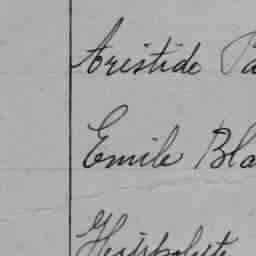 Aristide Pa
Emile Bla
Heippolyte